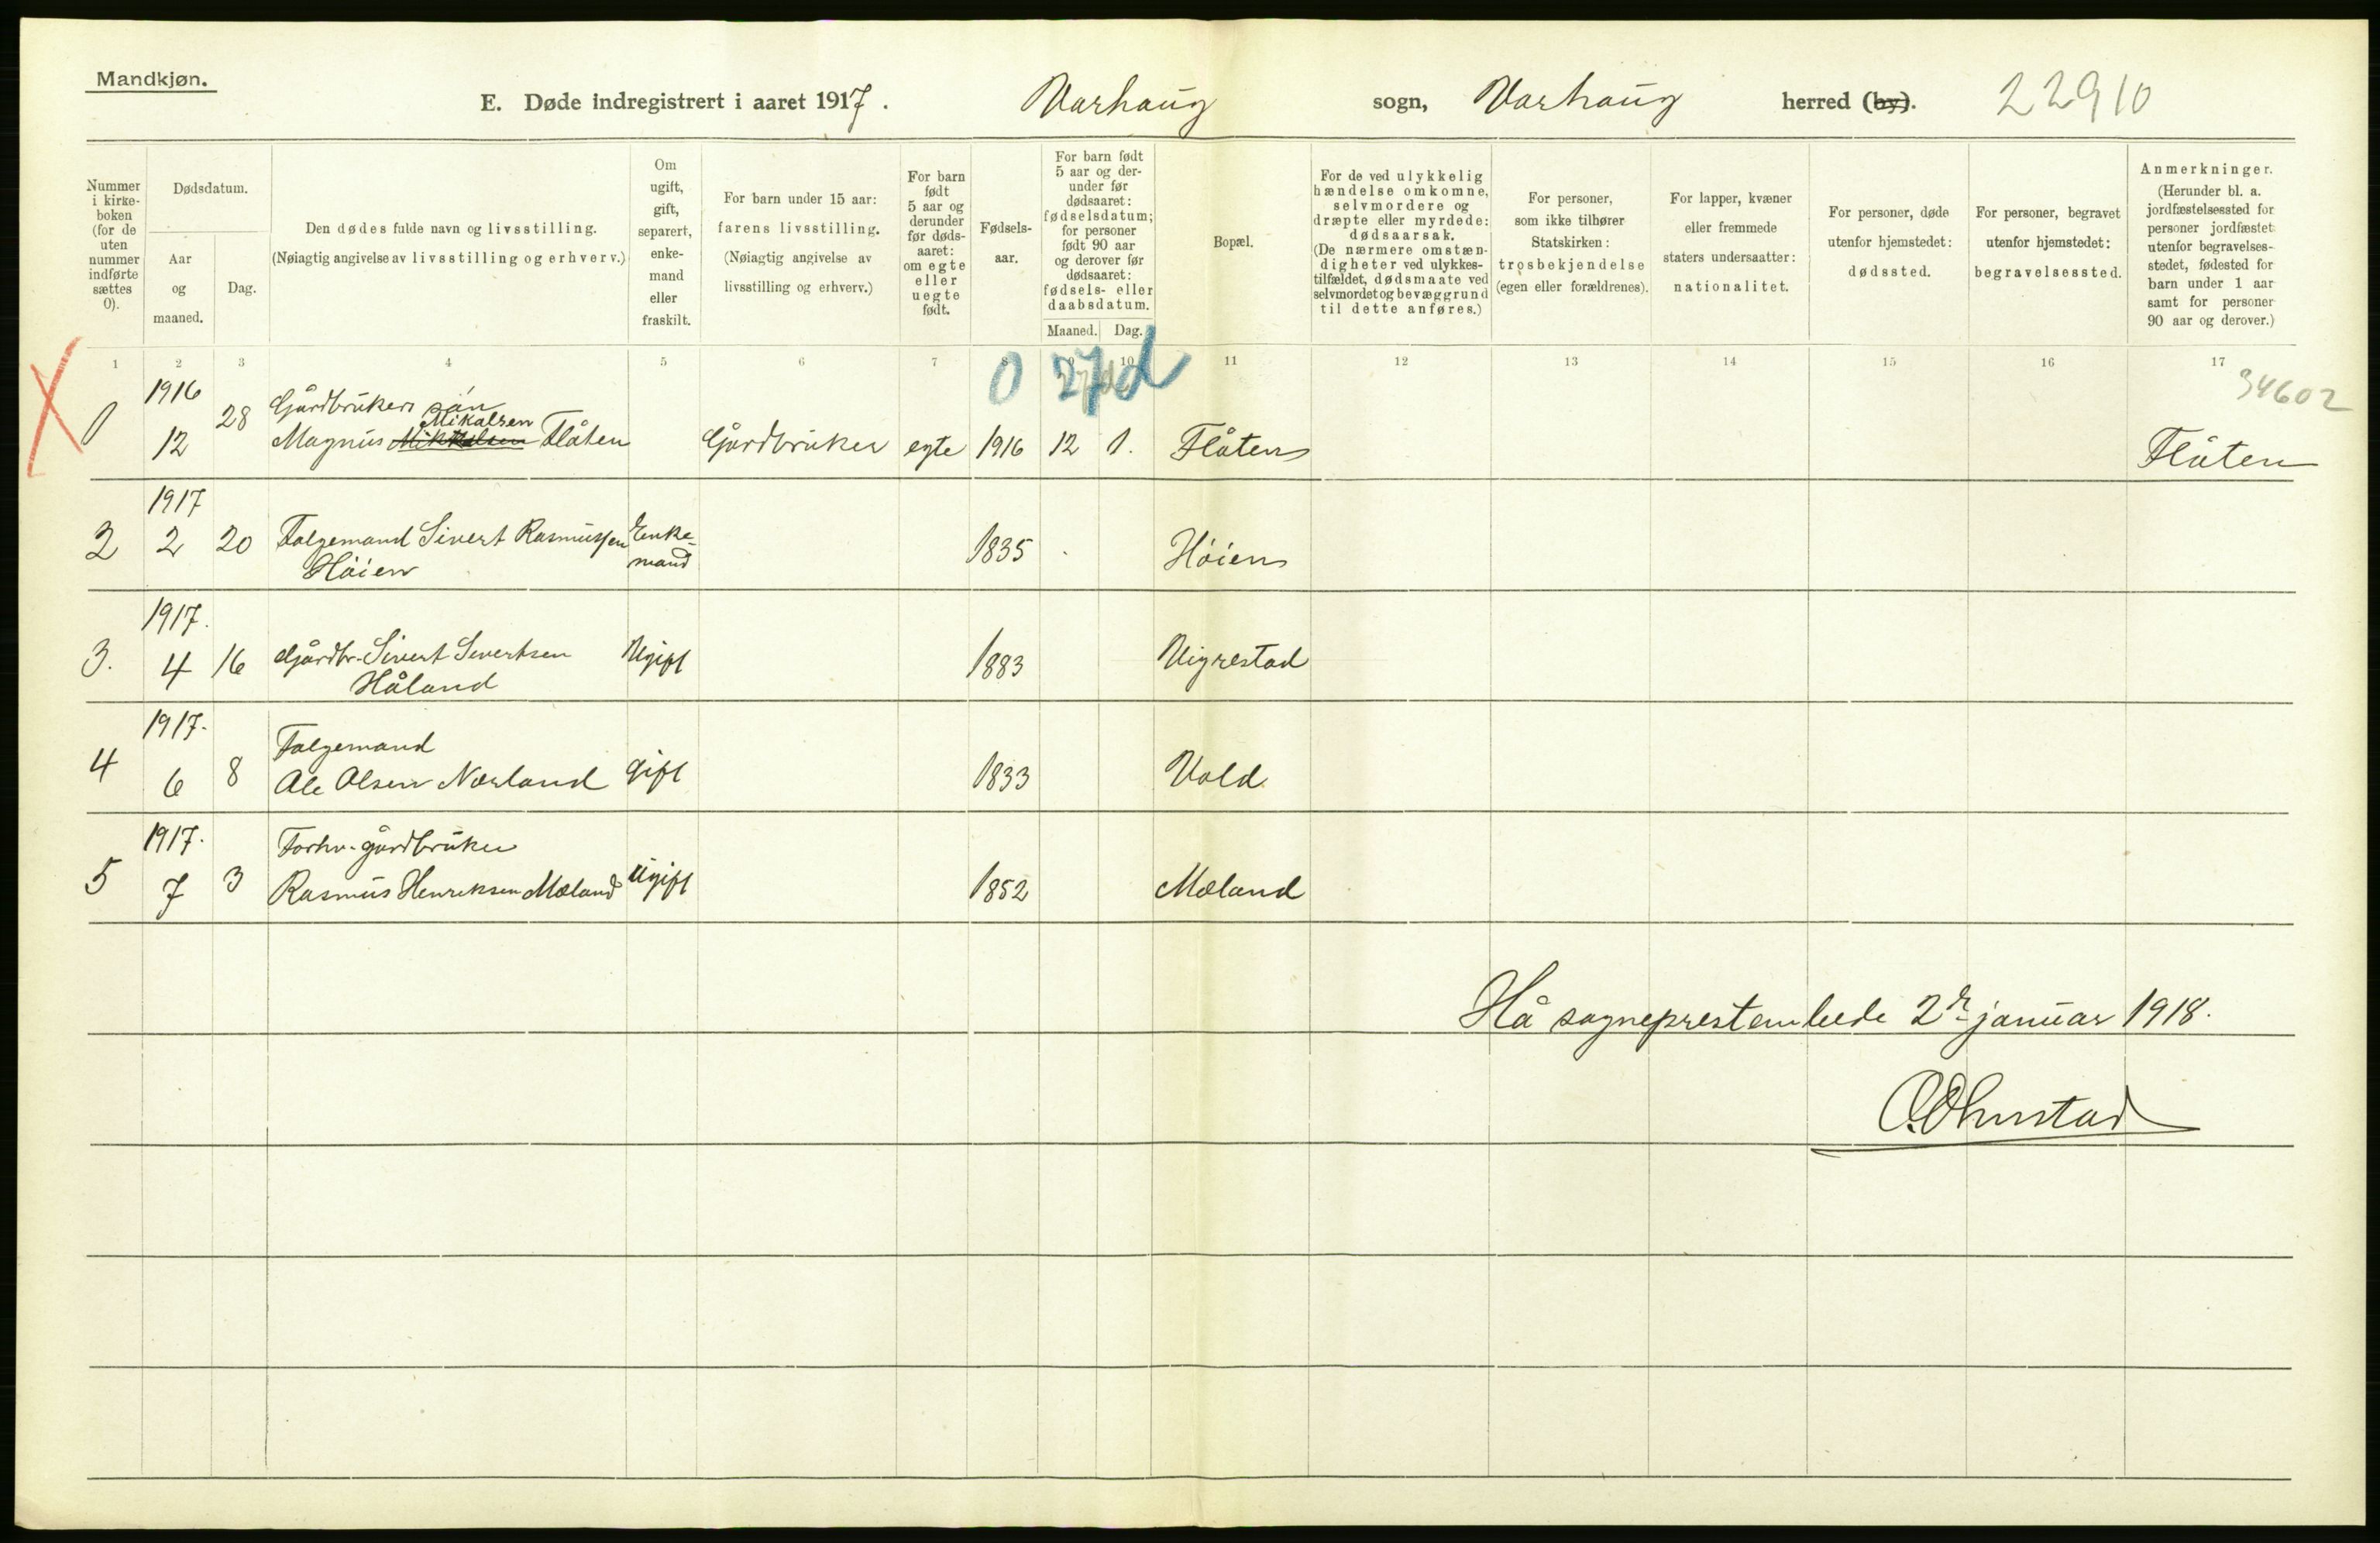 Mandkjøn.
E. Døde indregistrert i aaret 1917. Varhaug sogn, Varhaug herred (by). 22910
Nummer i kirke- boken (for de uten nummer indførte sættes 0).
Dødsdatum.
Aar og maaned.
Dag.
Den dødes fulde navn og livsstilling.
(Nøiagtig angivelse av livsstilling og erhverv.)
Om ugift, gift, separert, enke- mand eller fraskilt.
For barn under 15 aar:
farens livsstilling.
(Nøiagtig angivelse av
livsstilling og erhverv.)
For barn født 5 aar og derunder før døds- aaret: om egte eller uegte født.
Fødsels- aar.
For barn født 5 aar og der- under før dødsaaret: fødselsdatum; for personer født 90 aar og derover før dødsaaret: fødsels- eller daabsdatum.
Maaned. Dag.
Bopæl.
For de ved ulykkelig hændelse omkomne, selvmordere og dræpte eller myrdede: dødsaarsak. (De nærmere omstæn- digheter ved ulykkes- tilfældet, dødsmaate ved selvmordet og bevæggrund til dette anføres.)
For personer, som ikke tilhører Statskirken: trosbekjendelse (egen eller forældrenes).
For lapper, kvæner eller fremmede staters undersaatter: nationalitet.
For personer, døde utenfor hjemstedet: dødssted.
For personer, begravet utenfor hjemstedet: begravelsessted.
Anmerkninger. (Herunder bl. a. jordfæstelsessted for personer jordfæstet utenfor begravelses- stedet, fødested for barn under 1 aar samt for personer 90 aar og derover.)
1 2 3 4 5 6 7 8 9 10 11 12 13 14 15 16 17
0 27d
34602
1916 Gårdbrukers søn
Mikalsen
1 12 28 Magnus Mikkelsen Flåten Gårdbruker egte 1916 12 1. Flåten Flåten
1917
2 2 20 Følgemand Sivert Rasmussen Enke- 1835 Høien
Høien mand
1917.
3. 4 16 Gårdbr. Sivert Sivertsen Ugift 1883 Vigrestad
Håland
1917.
Følgemand
4 6 8 Ole Olsen Nærland gift 1833 Vold
1917. Forhv. gårdbruker
5 7 3 Rasmus Henriksen Mæland Ugift 1852 Mæland
Hå sogneprestembede 2 januar 1918.